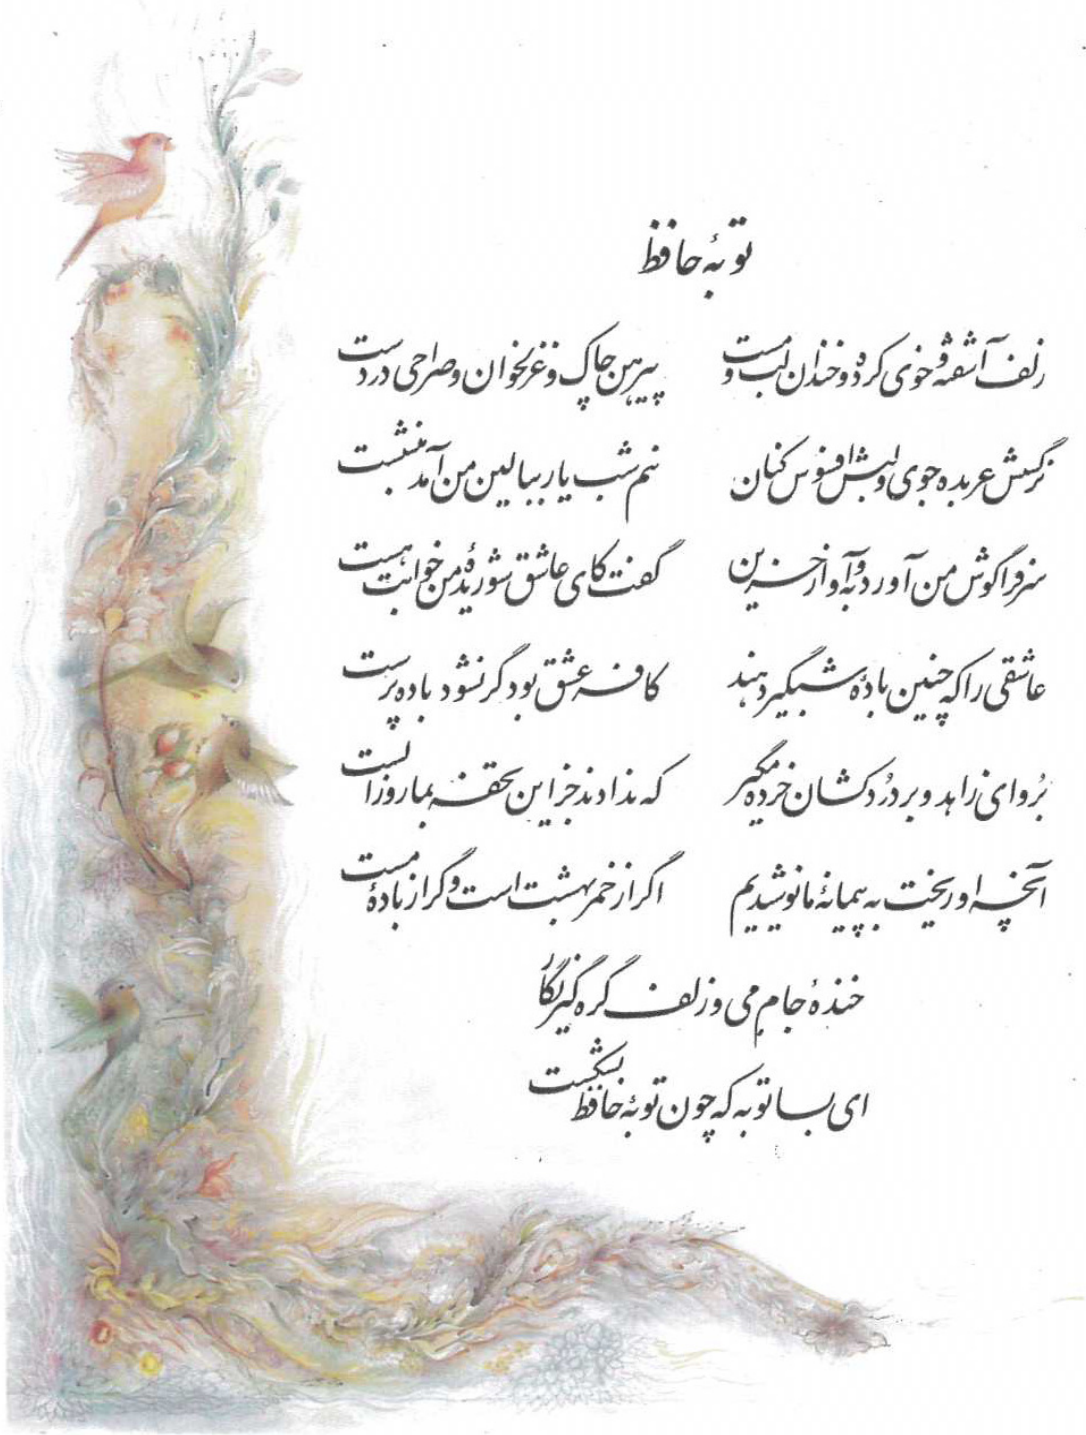 توبهٔ حافظ
زلف آشفته و خوی کرده و خندان لب و مست پیرهن چاک و غزلخوان و صراحی در دست
نرگسش عربده جوی و لبش افسوس کنان نیم شب یار ببالین من آمد بنشست
سر فرا گوش من آورد و به آواز حزین گفت کای عاشق شوریدهٔ من خوابت هست
عاشقی را که چنین بادهٔ شبگیر دهند کافر عشق بود گر نشود باده پرست
برو ای زاهد و بر دُردکشان خرده مگیر که ندادند جز این تحفه بما روز الست
آنچه او ریخت به پیمانهٔ ما نوشیدیم اگر از خمر بهشت است و گر از بادهٔ مست
خندهٔ جام می و زلف گره گیر نگار
ای بسا توبه که چون توبهٔ حافظ بشکست